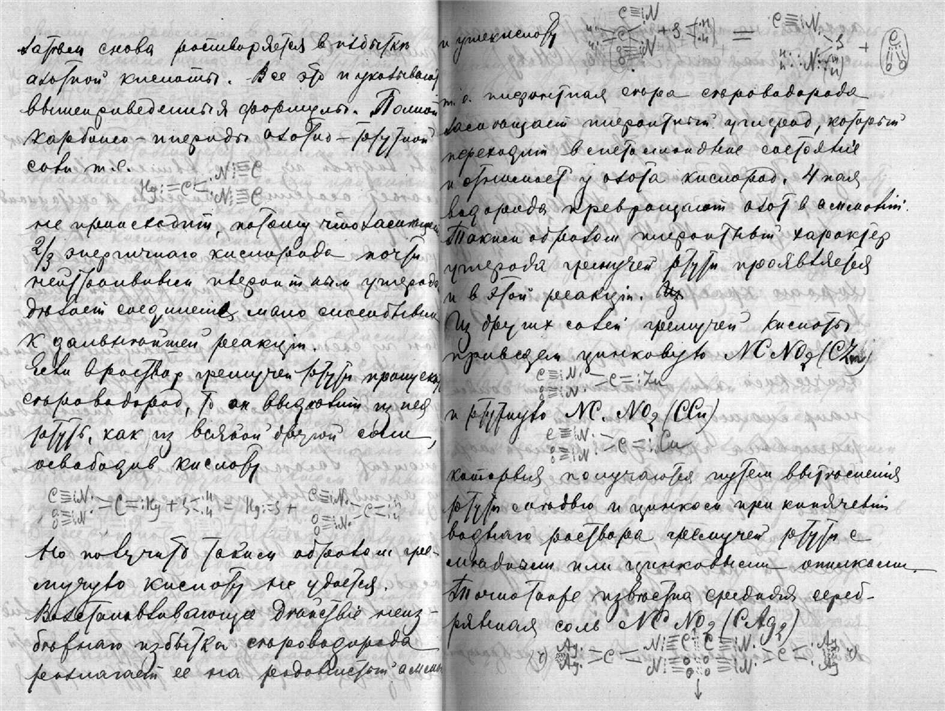 затем снова растворяется в избытке
азотной кислоты. Все это и указывает
вышеприведенныя формулы.
карбоно-пиериды азотно-ртутной
соли т.е.
Hg⋮=C<⋮N⋮≡C ⋮N⋮≡C
не происходит, потому что
2/3 энергичнаго кислорода почти
нейтрализован пиеритным углерод
делает соединение мало способным
к дальнейшей реакции.
Если в раствор гремучей ртути пропускать
сероводород, то он вытеснит из нея
ртуть, как из всякой другой соли,
освободив кислоту
C≡⋮N⋮ O≡⋮N⋮ >C=⋮Hg + S<H H = Hg⋮=S + C≡⋮N⋮ O≡⋮N⋮ >C<H H
Но получить таким образом гре-
мучую кислоту не удается.
Возстанавливающее Действие неиз-
бежнаго избытка сероводорода
разлагает ее на родонистый аммоний
и углекислоту
т.е. пиеритная сера сероводорода
насыщает пиеритный углерод, который
переходит в состояние
и отнимает у азота кислород. 4 пая
водорода превращают азот в аммоний.
Таким образом пиеритный характер
углерода гремучей ртути проявляется
и в этой реакции.
Из других солей гремучей кислоты
приведем цинковую NCNO2(CZn)
C≡⋮N⋮ O≡⋮N⋮ >C=⋮Zn
и ртутную NC NO2 (CCu)
C≡⋮N⋮ O≡⋮N⋮ >C=⋮Cu
которыя получаются путем вытеснения
ртути медью и цинком при кипячении
воднаго раствора гремучей ртути с
медными или цинковыми опилками.
Точно также известна средняя сереб-
рянная соль NC NO2 (CAg2)